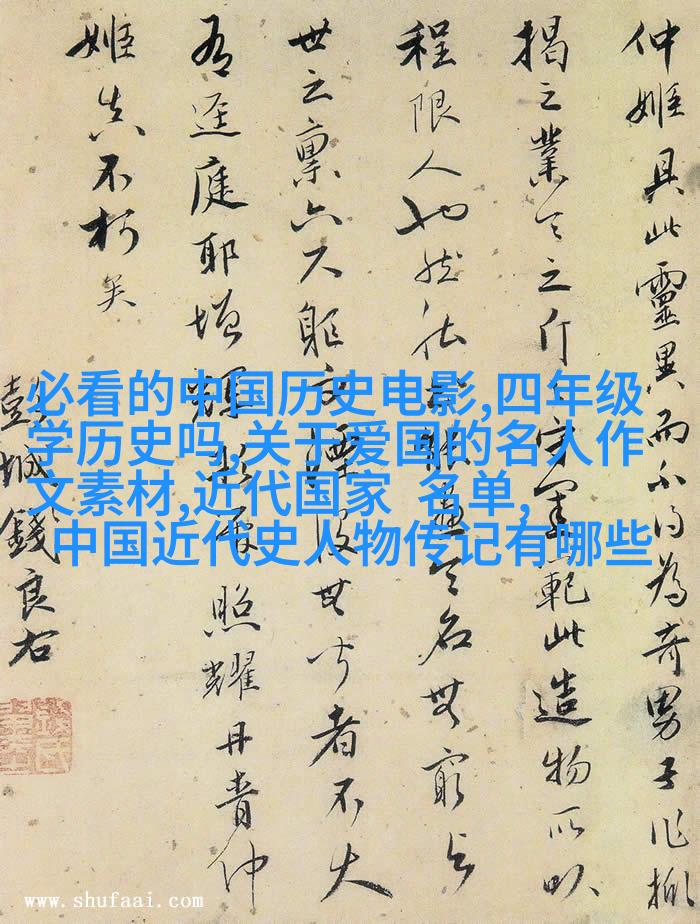 仲姬具此靈異而不得為奇男子作掀
揭之業天之斤守範此造物所以
程限人也然畫令名無窮與
世之稟六尺軀沒無聞者不大
有逕庭耶增輝照耀丹青仲
姬真不朽矣
城錢良右
必看的中国历史电影,四年级
学历史吗,关于爱国的名人作
文素材,近代国家 名单,
中国近代史人物传记有哪些
www.shufaai.com